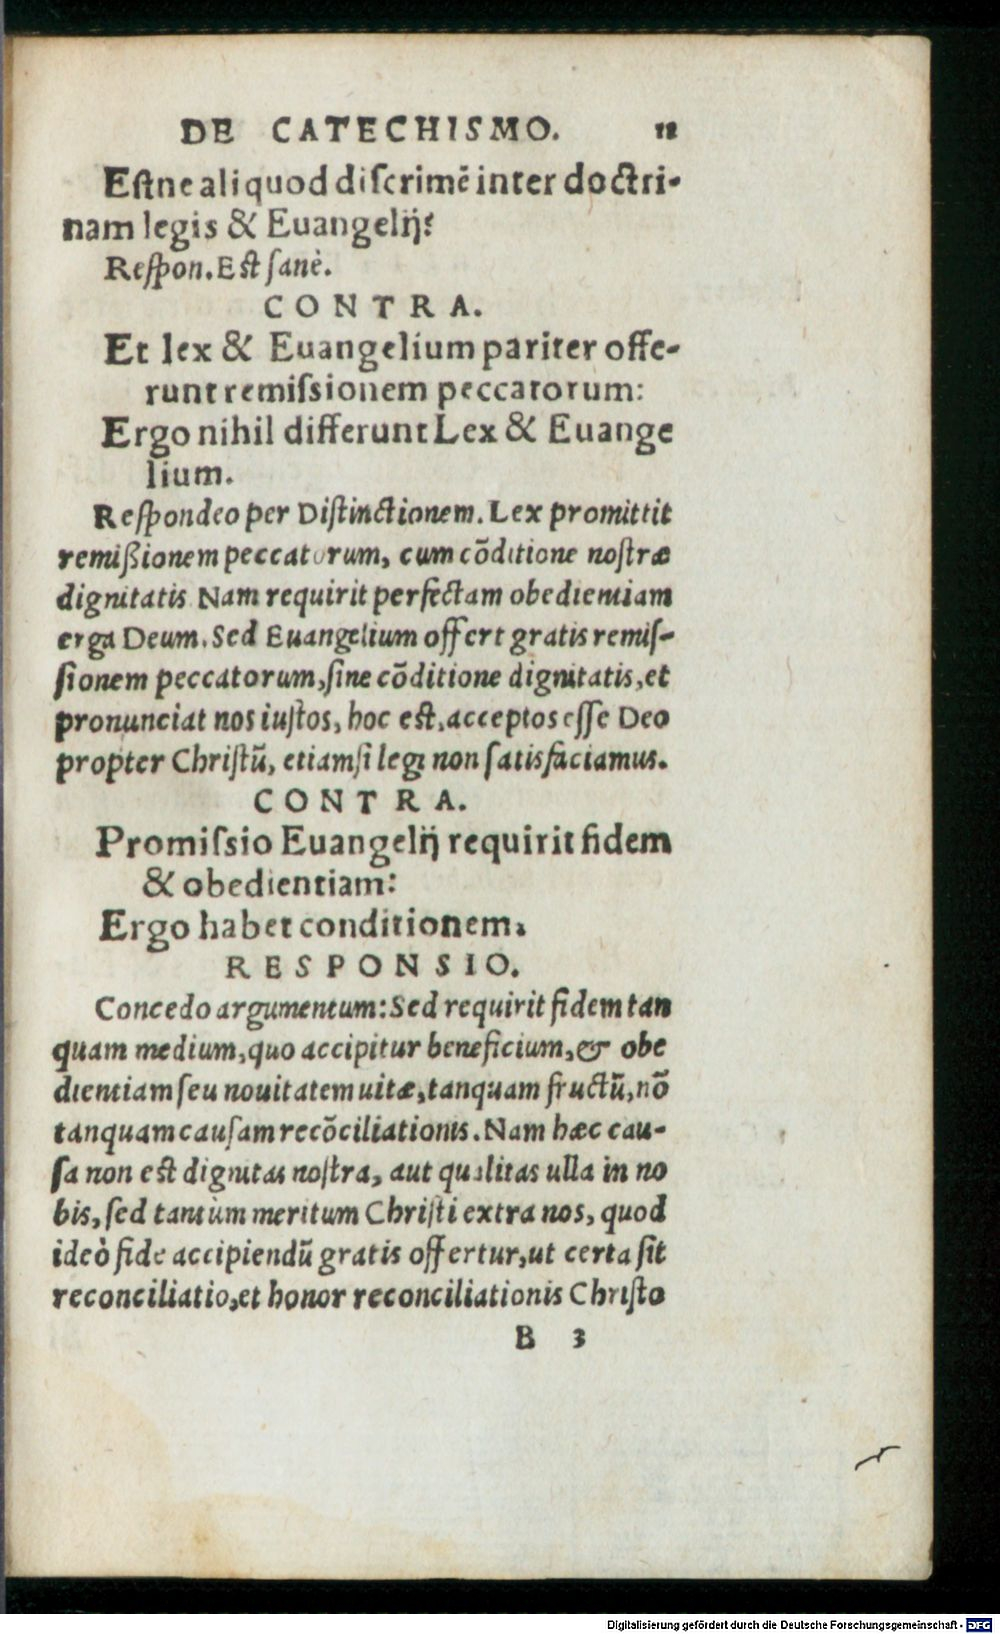 DE CATECHISMO. 11
Estne aliquod discrimē inter doctri-
nam legis & Euangelij?
Respon. Est sanè.
CONTRA.
Et lex & Euangelium pariter offe-
runt remissionem peccatorum:
Ergo nihil differunt Lex & Euange
lium.
Respondeo per Distinctionem. Lex promittit
remißionem peccatorum, cum cōditione nostræ
dignitatis Nam requirit perfectam obedientiam
erga Deum. Sed Euangelium offert gratis remis-
sionem peccatorum, sine cōditione dignitatis, et
pronunciat nos iustos, hoc est, acceptos esse Deo
propter Christū, etiamsi legi non satisfaciamus.
CONTRA.
Promissio Euangelij requirit fidem
& obedientiam:
Ergo habet conditionem.
RESPONSIO.
Concedo argumentum: Sed requirit fidem tan
quam medium, quo accipitur beneficium, & obe
dientiam seu nouitatem uitæ, tanquam fructū, nō
tanquam causam recōciliationis. Nam hæc cau-
sa non est dignitas nostra, aut qualitas ulla in no
bis, sed tantùm meritum Christi extra nos, quod
ideò fide accipiendū gratis offertur, ut certa sit
reconciliatio, et honor reconciliationis Christo
B 3
Digitalisierung gefördert durch die Deutsche Forschungsgemeinschaft - DFG